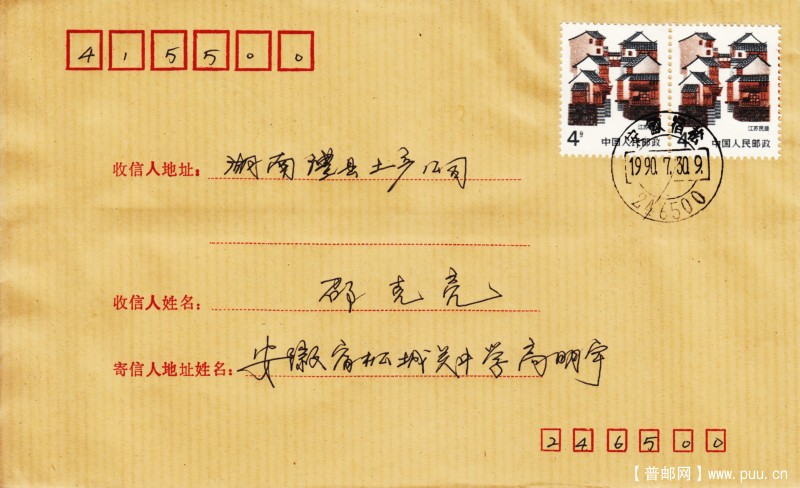 415500
4分 江苏民居
中国人民邮政
4分 江苏民居
中国人民邮政
安徽宿松
1990.7.30.9.
246500
收信人地址: 湖南澧县土产公司
收信人姓名: 邵克亮
寄信人地址姓名: 安徽宿松城关中学高明宇
246500
【普邮网】www.puu.cn